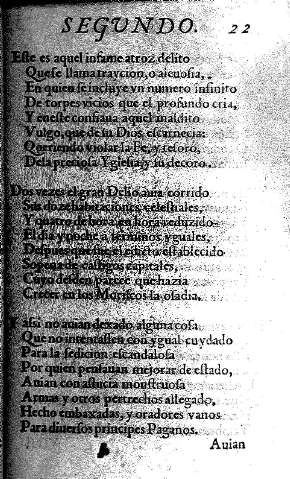 SEGUNDO. 22
Este es aquel infame atroz delito
Que se llama traycion, o aleuosia,
En quien se incluye vn numero infinito
De torpes vicios que el profundo cria,
Y en este confiaua aquel maldito
Vulgo, que de su Dios escarnecia:
Queriendo violar la Fe, y tesoro,
De la preciosa Yglesia, y su decoro.
Dos vezes el gran Delio auia corrido
Sus doze habitaciones celestiales,
Y quatro de hora en hora reduzido
El dia y noche a terminos yguales,
Despues que el establecido
capitales,
Cuyo desden parece que hazia
Crecer en los Moriscos la osadia.
Y assi no auian dexado alguna cosa
Que no intentassen con ygual cuydado
Para la sedicion escandalosa
Por quien pensauan mejorar de estado,
Auian con astucia monstruosa
Armas y otros pertrechos allegado,
Hecho embaxadas, y oradores vanos
Para diuersos principes Paganos.
Auian